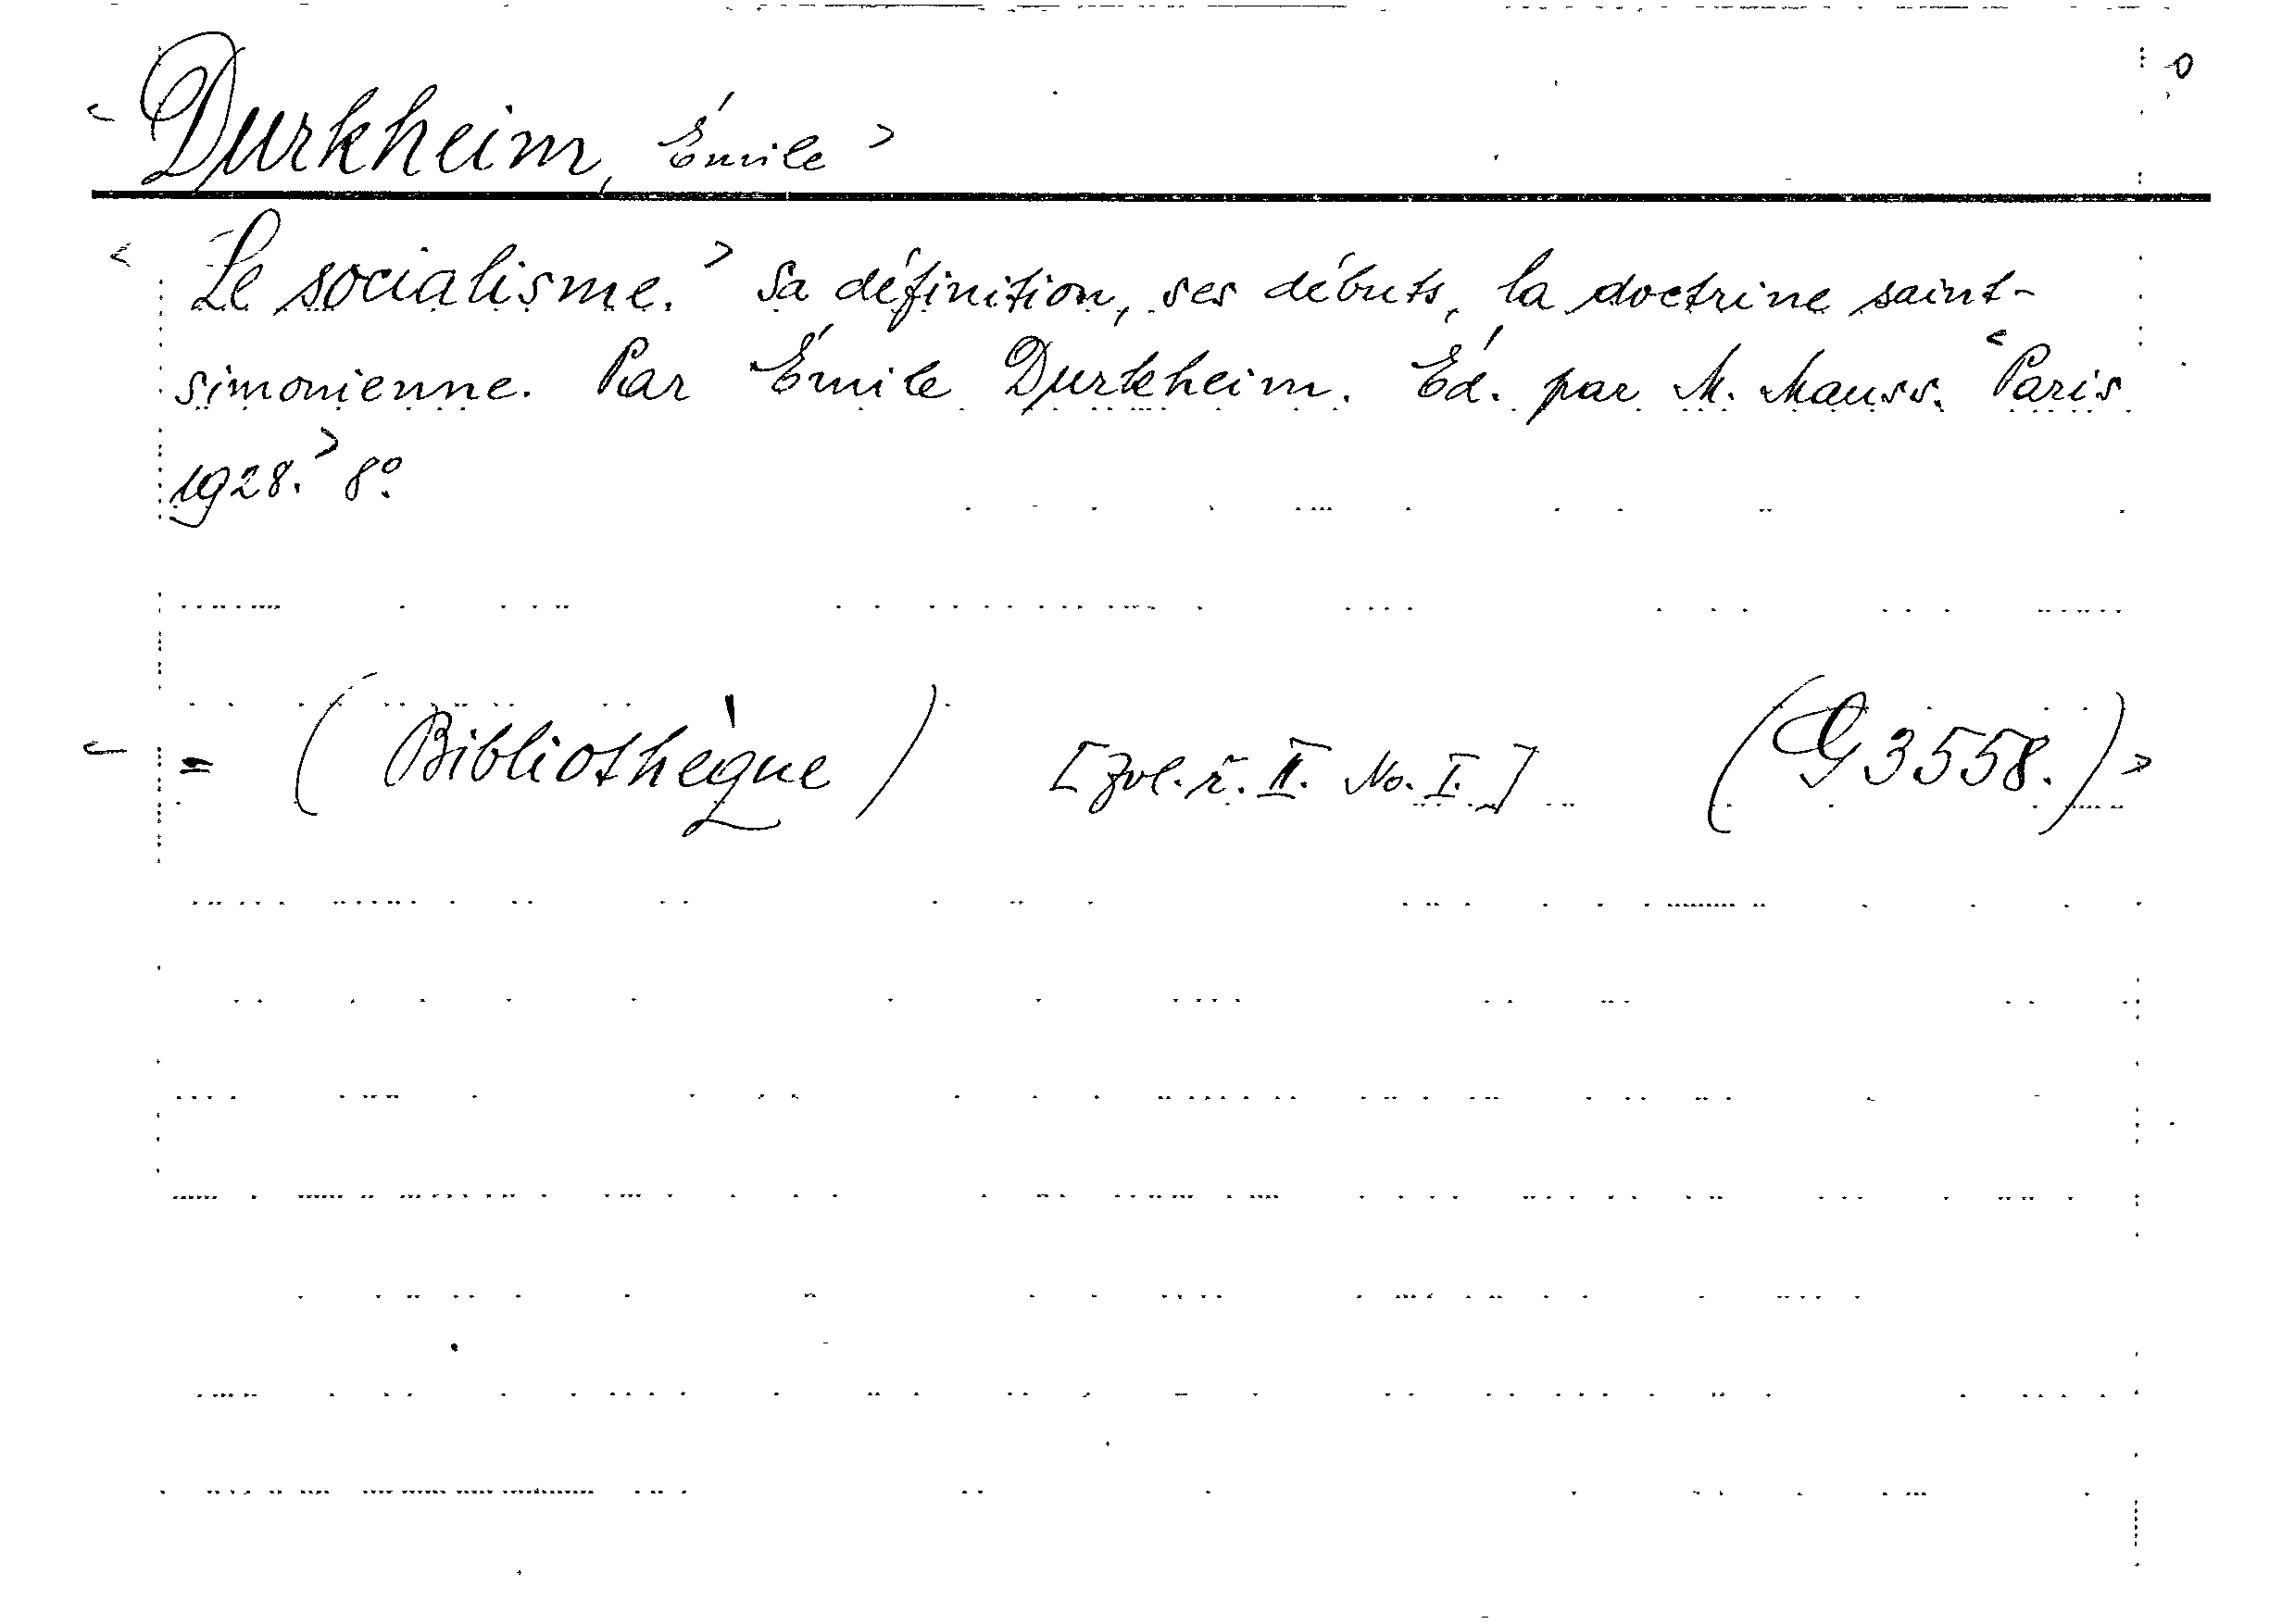 < Durkheim, Émile > 0
< Le socialisme. > Sa définition, ses débuts, la doctrine saint-
simonienne. Par Émile Durkheim. Éd. par M. Mauss. < Paris
1928. > 8º
< = (Bibliothèque) [zvl. ř. II. No. I.] (G 3558.) >